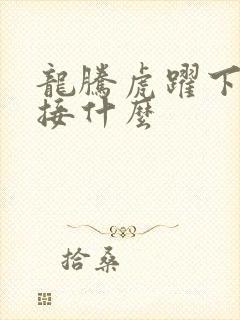 龍騰虎躍下
接什麼
拾桑